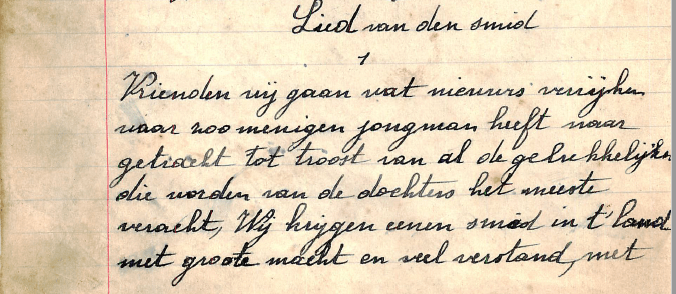 Lied van den smid
1
Vrienden wij gaan wat nieuws verrijken
waar zoo menigen jongman heeft naar
getracht tot troost van al de gebrekkelijken
die worden van de dochters het meeste
veracht, Wij krijgen eenen smid in t' land
met groote macht en veel verstand, met